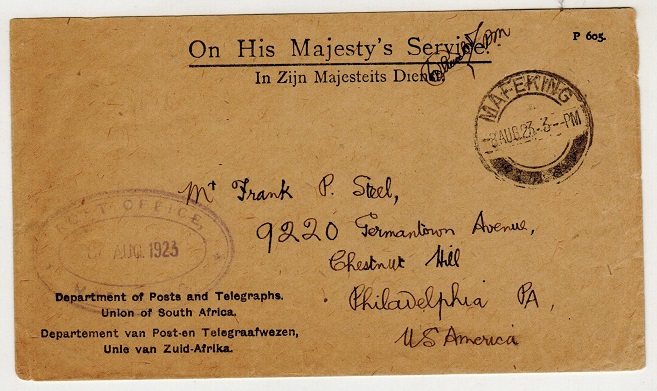 On His Majesty's Service.
P 605.
In Zijn Majesteits Dienst.
PM
MAFEKING
AUG 23. 3 - PM
Mr Frank P. Steel,
9220 Germantown Avenue,
Chestnut Hill
Philadelphia PA,
US America
POST OFFICE,
AUG 1923
Department of Posts and Telegraphs.
Union of South Africa.
Departement van Post-en Telegraafwezen,
Unie van Zuid-Afrika.